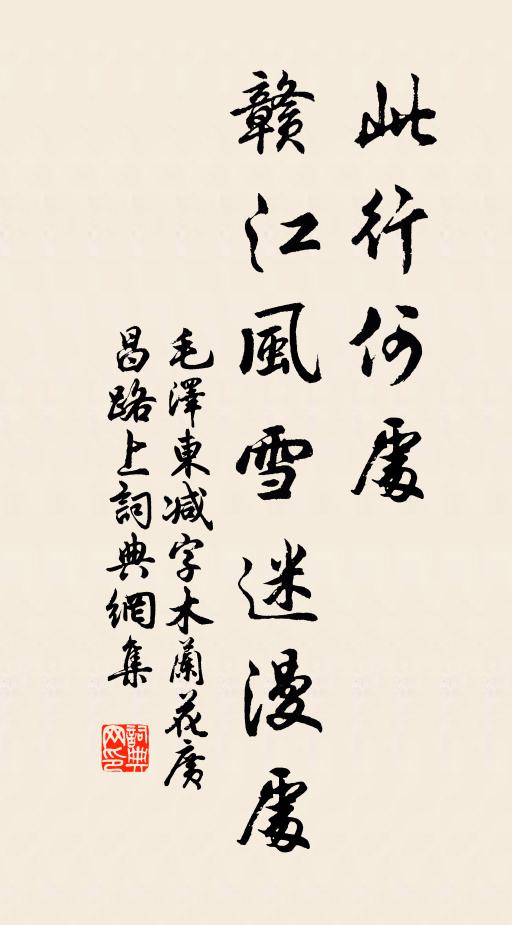 此行何處
贛江風雪迷漫處
毛澤東減字木蘭花廣
昌路上詞典網集
詞典
网印